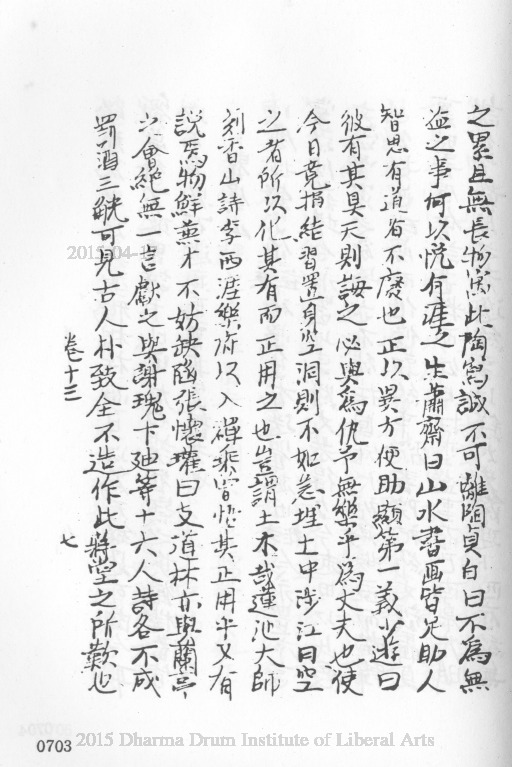 之累且無長物寓此陶寫誠不可離陶貞白曰不為無
益之事何以悅有涯之生蕭齋曰山水書画皆足助人
智思有道者不廢也正以異方便助顯第一義少遊曰
彼有其具天則誨之必與為仇予無樂乎為丈夫也使
今日竟捐結習置身空洞則不如急埋土中涉江曰空
之者所以化其有而正用之也豈謂土木哉蓮池大師
刻香山詩李西涯樂府以入禪乘皆悟其正用乎又有
說焉物鮮兼才不妨缺陷張懷瓘曰支道林亦與蘭亭
之會絕無一言獻之與謝瑰卞廸等十六人詩各不成
罰酒三觥可見古人朴致全不造作此將空之所歎也
卷十三
七
2015-04-
0703
2015 Dharma Drum Institute of Liberal Arts